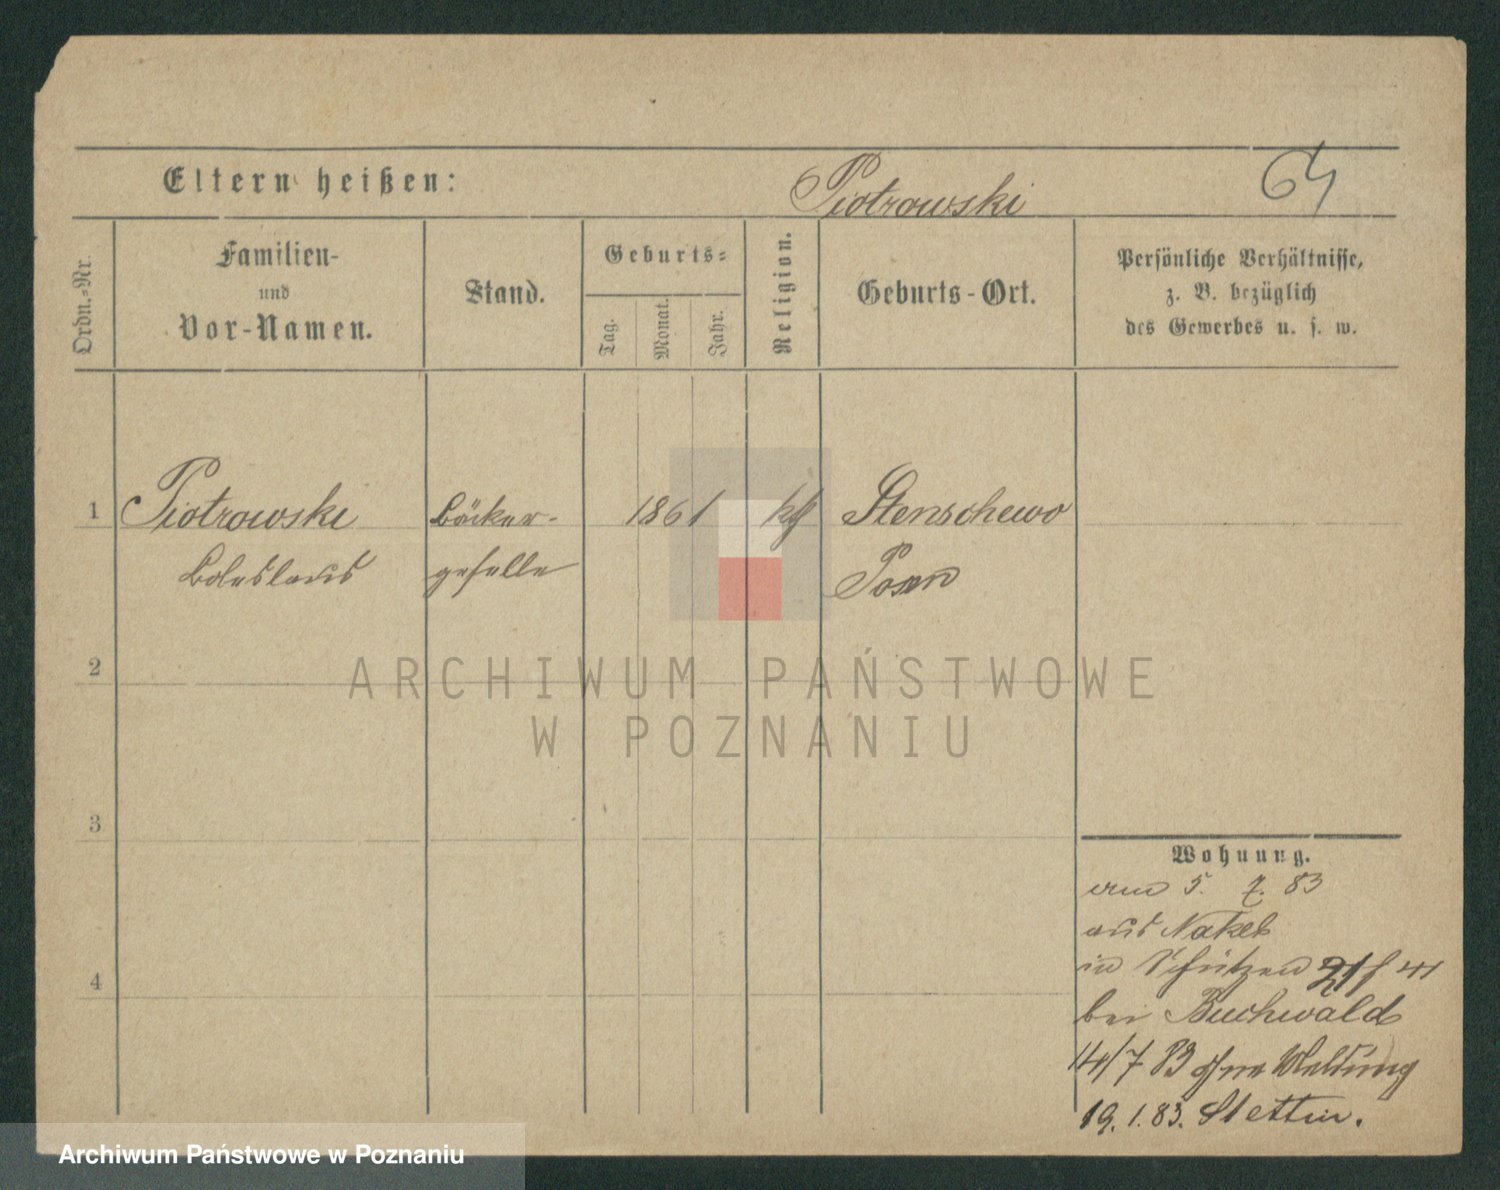 Eltern heißen:
Piotrowski
64
Ordn.-Nr.
Familien-
und
Vor-Namen.
Stand.
Geburts-
Tag.
Monat.
Jahr.
Religion.
Geburts-Ort.
Persönliche Verhältnisse,
z. B. bezüglich
des Gewerbes u. s. w.
1 Piotrowski Bäcker- 1861 kth Stenschewo
Boleslaus geselle Posen
2
ARCHIWUM PAŃSTWOWE
W POZNANIU
3
Wohnung.
vom 5. 7. 83
aus Nakel
in Schützen 21
4
bei Buchwald
14/7 83 ohne Meldung
19. 1. 83. Stettin.
Archiwum Państwowe w Poznaniu